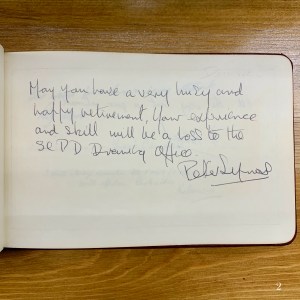 May you have a very busy and
happy retirement, Your experience
and skill will be a loss to the
Drawing Office.
Peter
2